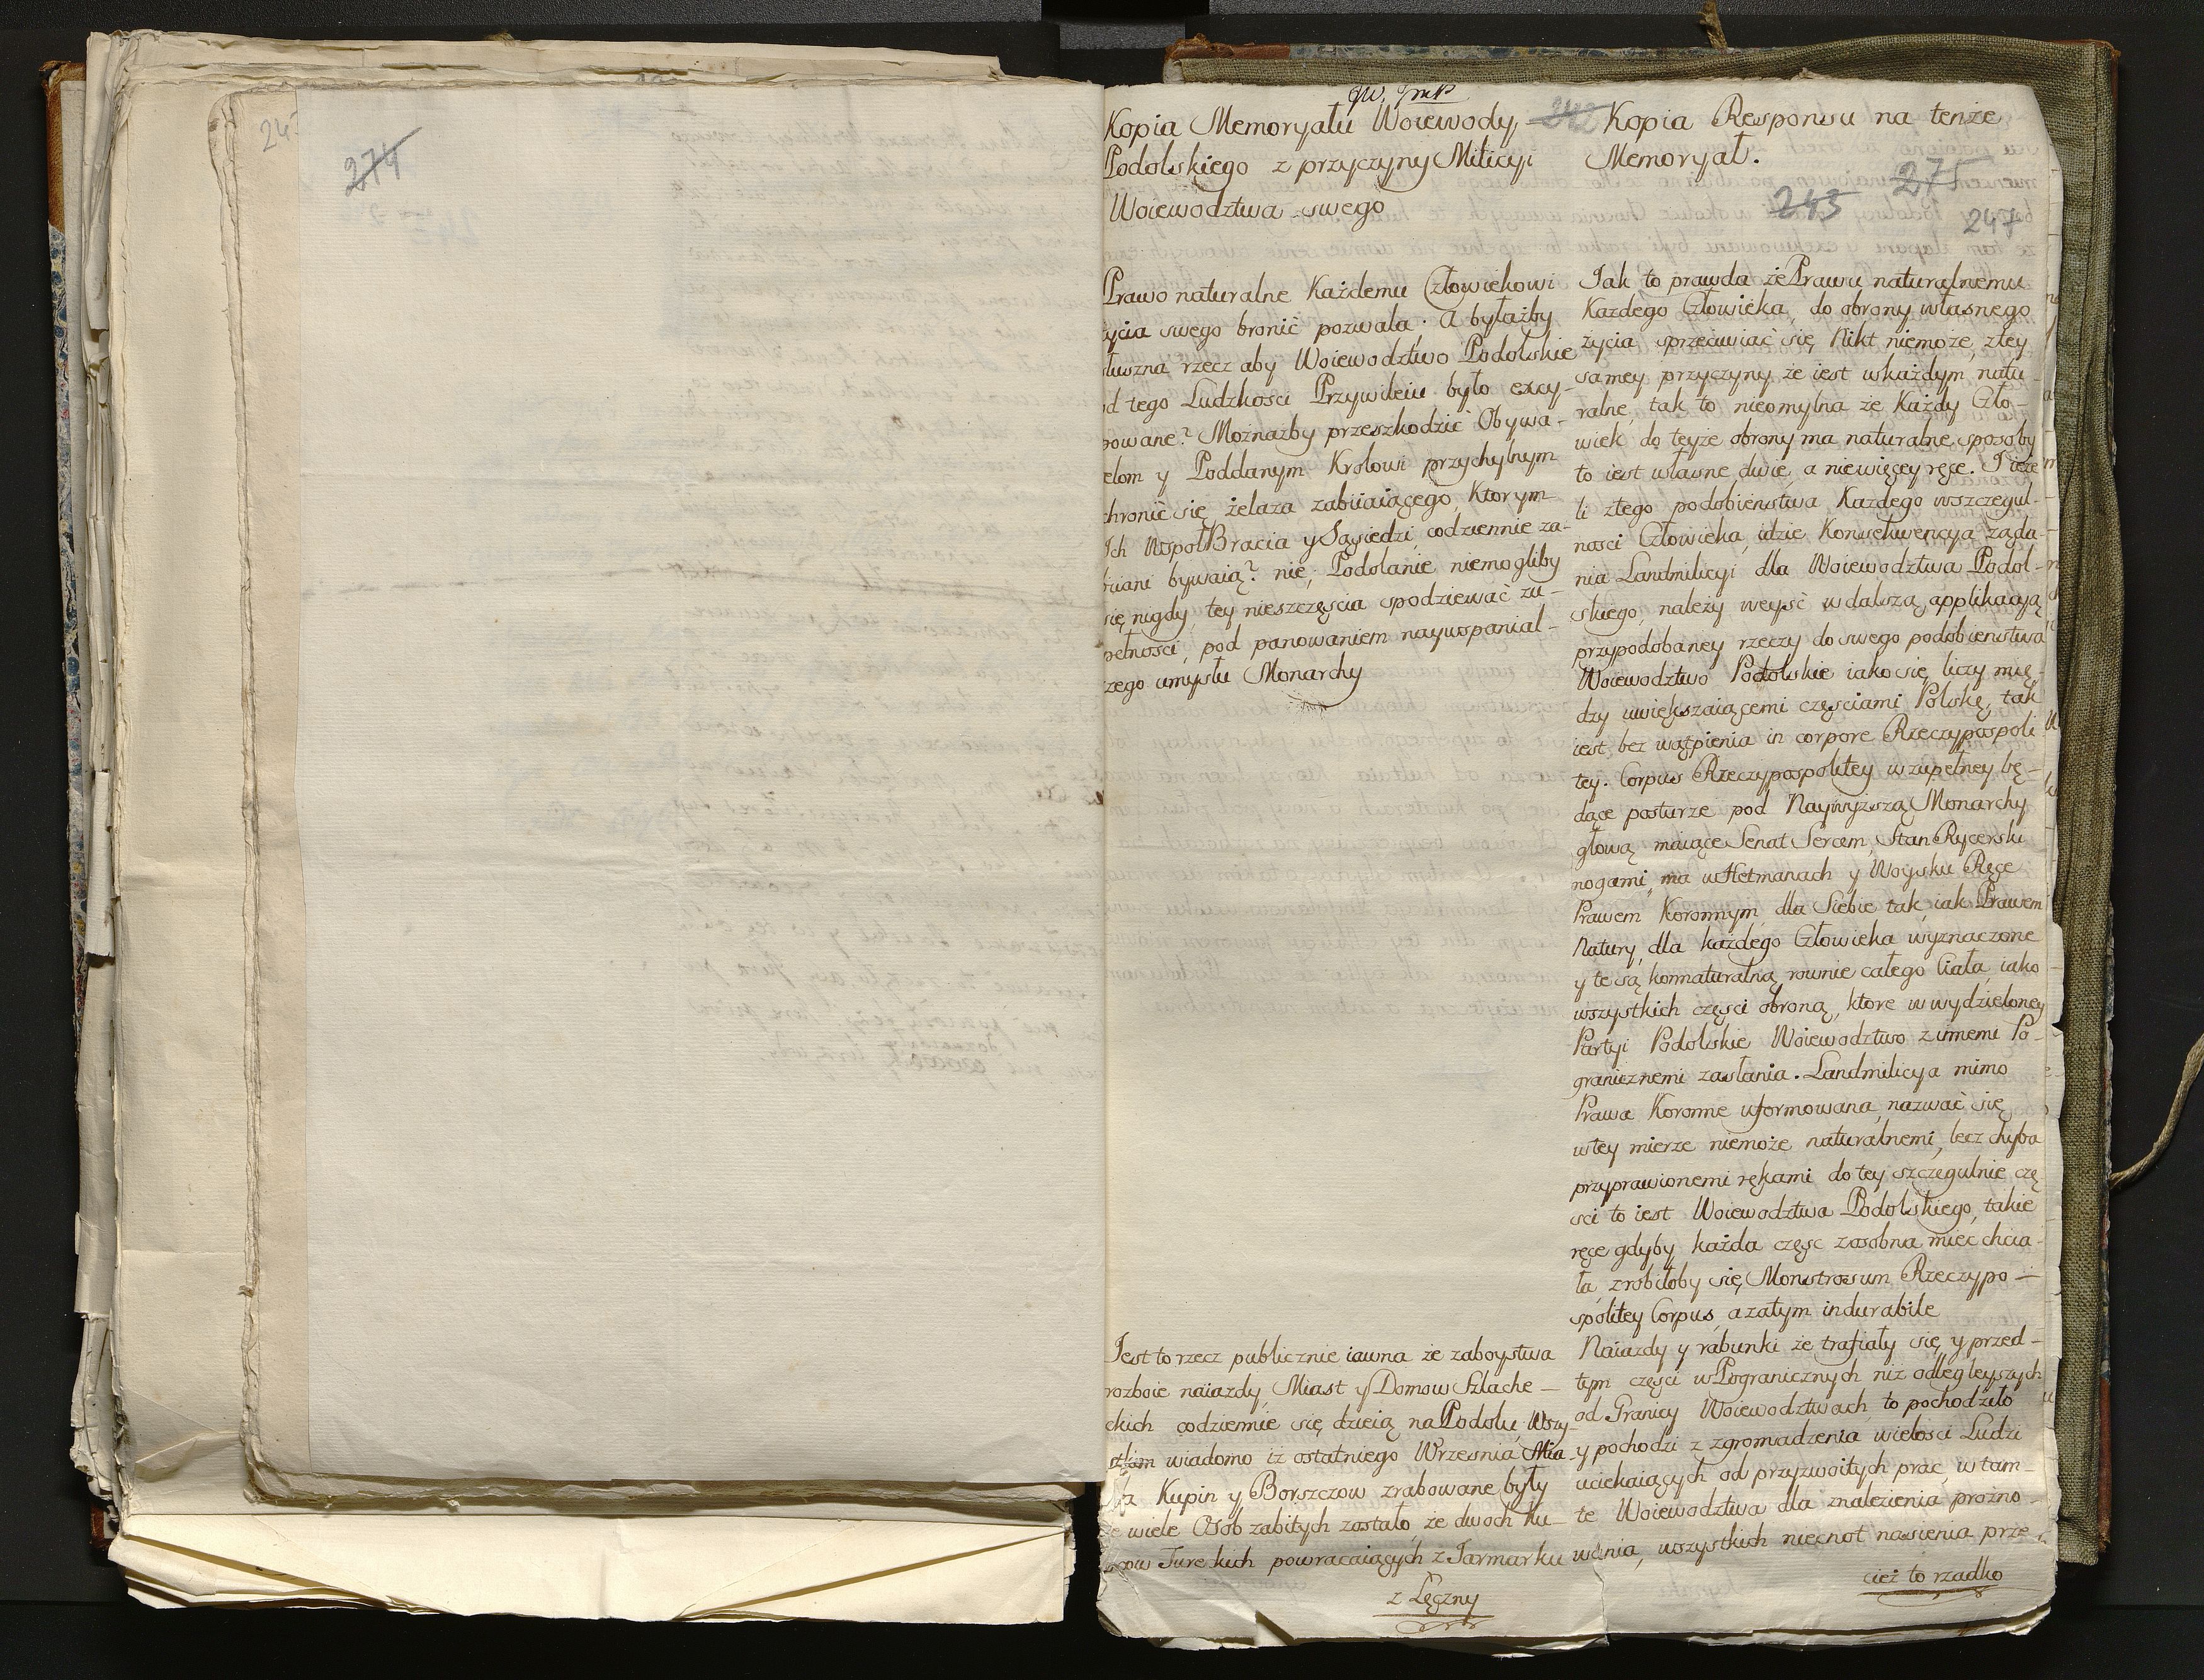 274
Jw. JmP
Kopia Memoryału Woiewody
Podolskiego z przyczyny Milicyi
Woiewodztwa swego
Prawo naturalne Każdemu Człowiekowi
życia swego bronić pozwala. A byłażby
słuszna rzecz aby Woiewodztwo Podolskie
od tego Ludzkości Przywileiu było excy-
powane? Możnażby przeszkodzić Obywa-
telom y Poddanym Krolowi przychylnym
chronić się żelaza zabiiaiącego, Ktorym
Ich WspołBracia y Sąsiedzi codziennie za-
biiani bywaią? nie, Podolanie niemogliby
się nigdy tey nieszczęścia spodziewać zu-
pełności, pod panowaniem naywspanial-
szego umysłu Monarchy
Jest to rzecz publicznie iawna że zaboystwa
rozboie naiazdy Miast y Domow Szlache-
ckich codziennie się dzieią na Podolu, Wszy-
stkim wiadomo iż ostatniego Wrzesnia Mia-
sta Kupin y Borszczow zrabowane były
że wiele Osob zabitych zostało, że dwoch Ku-
pcow Tureckich powracaiących z Jarmarku
z Łęczny
242
Kopia Responsu na tenże
Memoryał.
275
243
247
Jak to prawda że Prawu naturalnemu
Każdego Człowieka, do obrony własnego
życia sprzeciwiać się Nikt niemoże, z tey
samey przyczyny że iest w każdym natu-
ralne, tak to nieomylna że Każdy Czło-
wiek do teyże obrony ma naturalne sposoby
to iest własne dwie, a niewięcey ręce. I ieże
li z tego podobieństwa Każdego wszczegul-
ności Człowieka, idzie Konsekwencya żąda-
nia Landmilicyi dla Woiewodztwa Podol-
skiego, należy weyść w dalszą applikacyą
przypodobaney rzeczy do swego podobieństwa
Woiewodztwo Podolskie iako się liczy mię-
dzy uwiększaiącemi częściami Polskę, tak
iest bez wątpienia in corpore Rzeczypospoli
tey. Corpus Rzeczypospolitey w zupełney bę-
dące posturze pod Naywyższą Monarchy
głową maiące Senat Sercem, Stan Rycerski
nogami, ma w Hetmanach y Woysku Ręce
Prawem Koronnym dla Siebie tak, iak Prawem
Natury, dla każdego Człowieka wyznaczone
y te są konnaturalną rownie całego Ciała, iako
wszystkich części obroną, ktore w wydzieloney
Partyi Podolskie Woiewodztwo z innemi Po-
granicznemi zasłania. Landmilicya mimo
Prawa Koronne uformowana, nazwać się
w tey mierze niemoże naturalnemi, lecz chyba
przyprawionemi rękami do tey szczegulnie czę
ści to iest Woiewodztwa Podolskiego, takie
ręce gdyby każda częśc zosobna miec chcia-
ła, zrobiłoby się Monstrosum Rzeczypo-
spolitey Corpus, a zatym indurabile
Naiazdy y rabunki że trafiały się y przed-
tym części w Pogranicznych niż odlegleyszych
od Granicy Woiewodztwach, to pochodziło
y pochodzi z zgromadzenia wielości Ludzi
uciekaiących od przyzwoitych prac, w tam-
te Woiewodztwa dla znalezienia prożno-
wania, wszystkich niecnot nasienia prze-
cież to rzadko